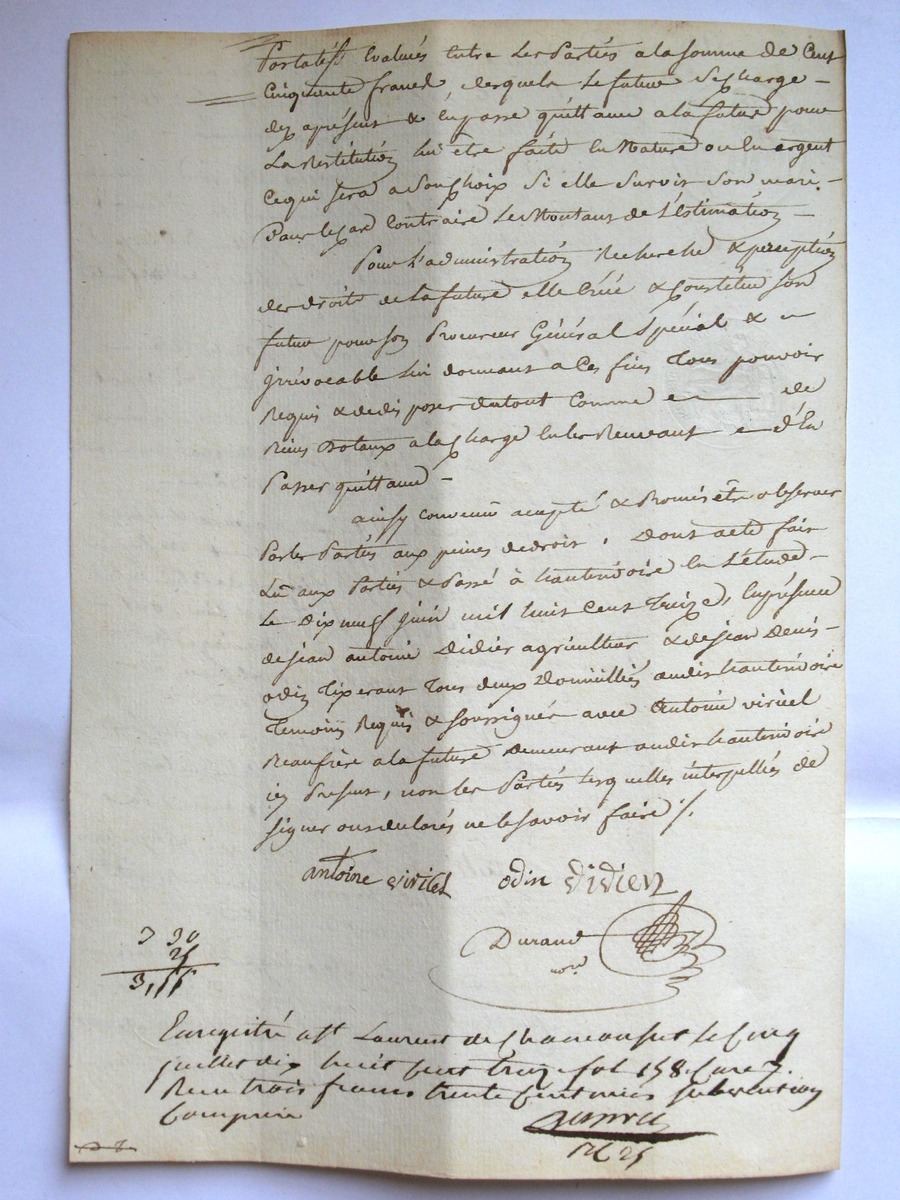 Portatifs Evalués entre Les Parties a la somme de Cent
Cinquante francs, desquels Le futur Se charge –
dez aprésent & en passe quittance a la future pour
La restitution lui être faite En Nature ou En argent
Ce qui sera a Son choix Si elle Survit Son mari. –
Dans le cas Contraire Le Montant de L'Estimation –
Pour L'administration Recherche & perception
des droits de la future elle Créé & Constitue Son
futur pour son Procureur Général Spécial & –
irrévocable lui donnant a Ces fins Tous pouvoir
Requis & de disposer du tout Comme de
Biens Dotaux a la Charge En les Recevant d'En
Passer quittance –
ainsy convenu accepté & Promis être observer
Par les Parties aux peines de droit, Dont acte fait
Lû aux Parties & Passé à hauterivoire En L'étude –
Le Dix neuf juin mil huit Cent Treize, En présence
de jean antoine Didier agriculteur & de jean Denis –
odin Tixerant Tous deux Domiciliés audit hauterivoire
Temoins Requis & Soussignés avec Antoine viricel
Beaufrère a la future Demeurant audit hauterivoire
icy Present, non les Parties lesquelles interpellées de
signer ont declarés ne le Savoir faire ./.
antoine viricel odin Didier
Durand
nore
3 30
25
3,55
Enregistré a St Laurent de Chamousset le Cinq
juillet dix huit Cent treize fol 158. Case 7.
Recu trois francs trente Centimes Subvention
Comprise
25